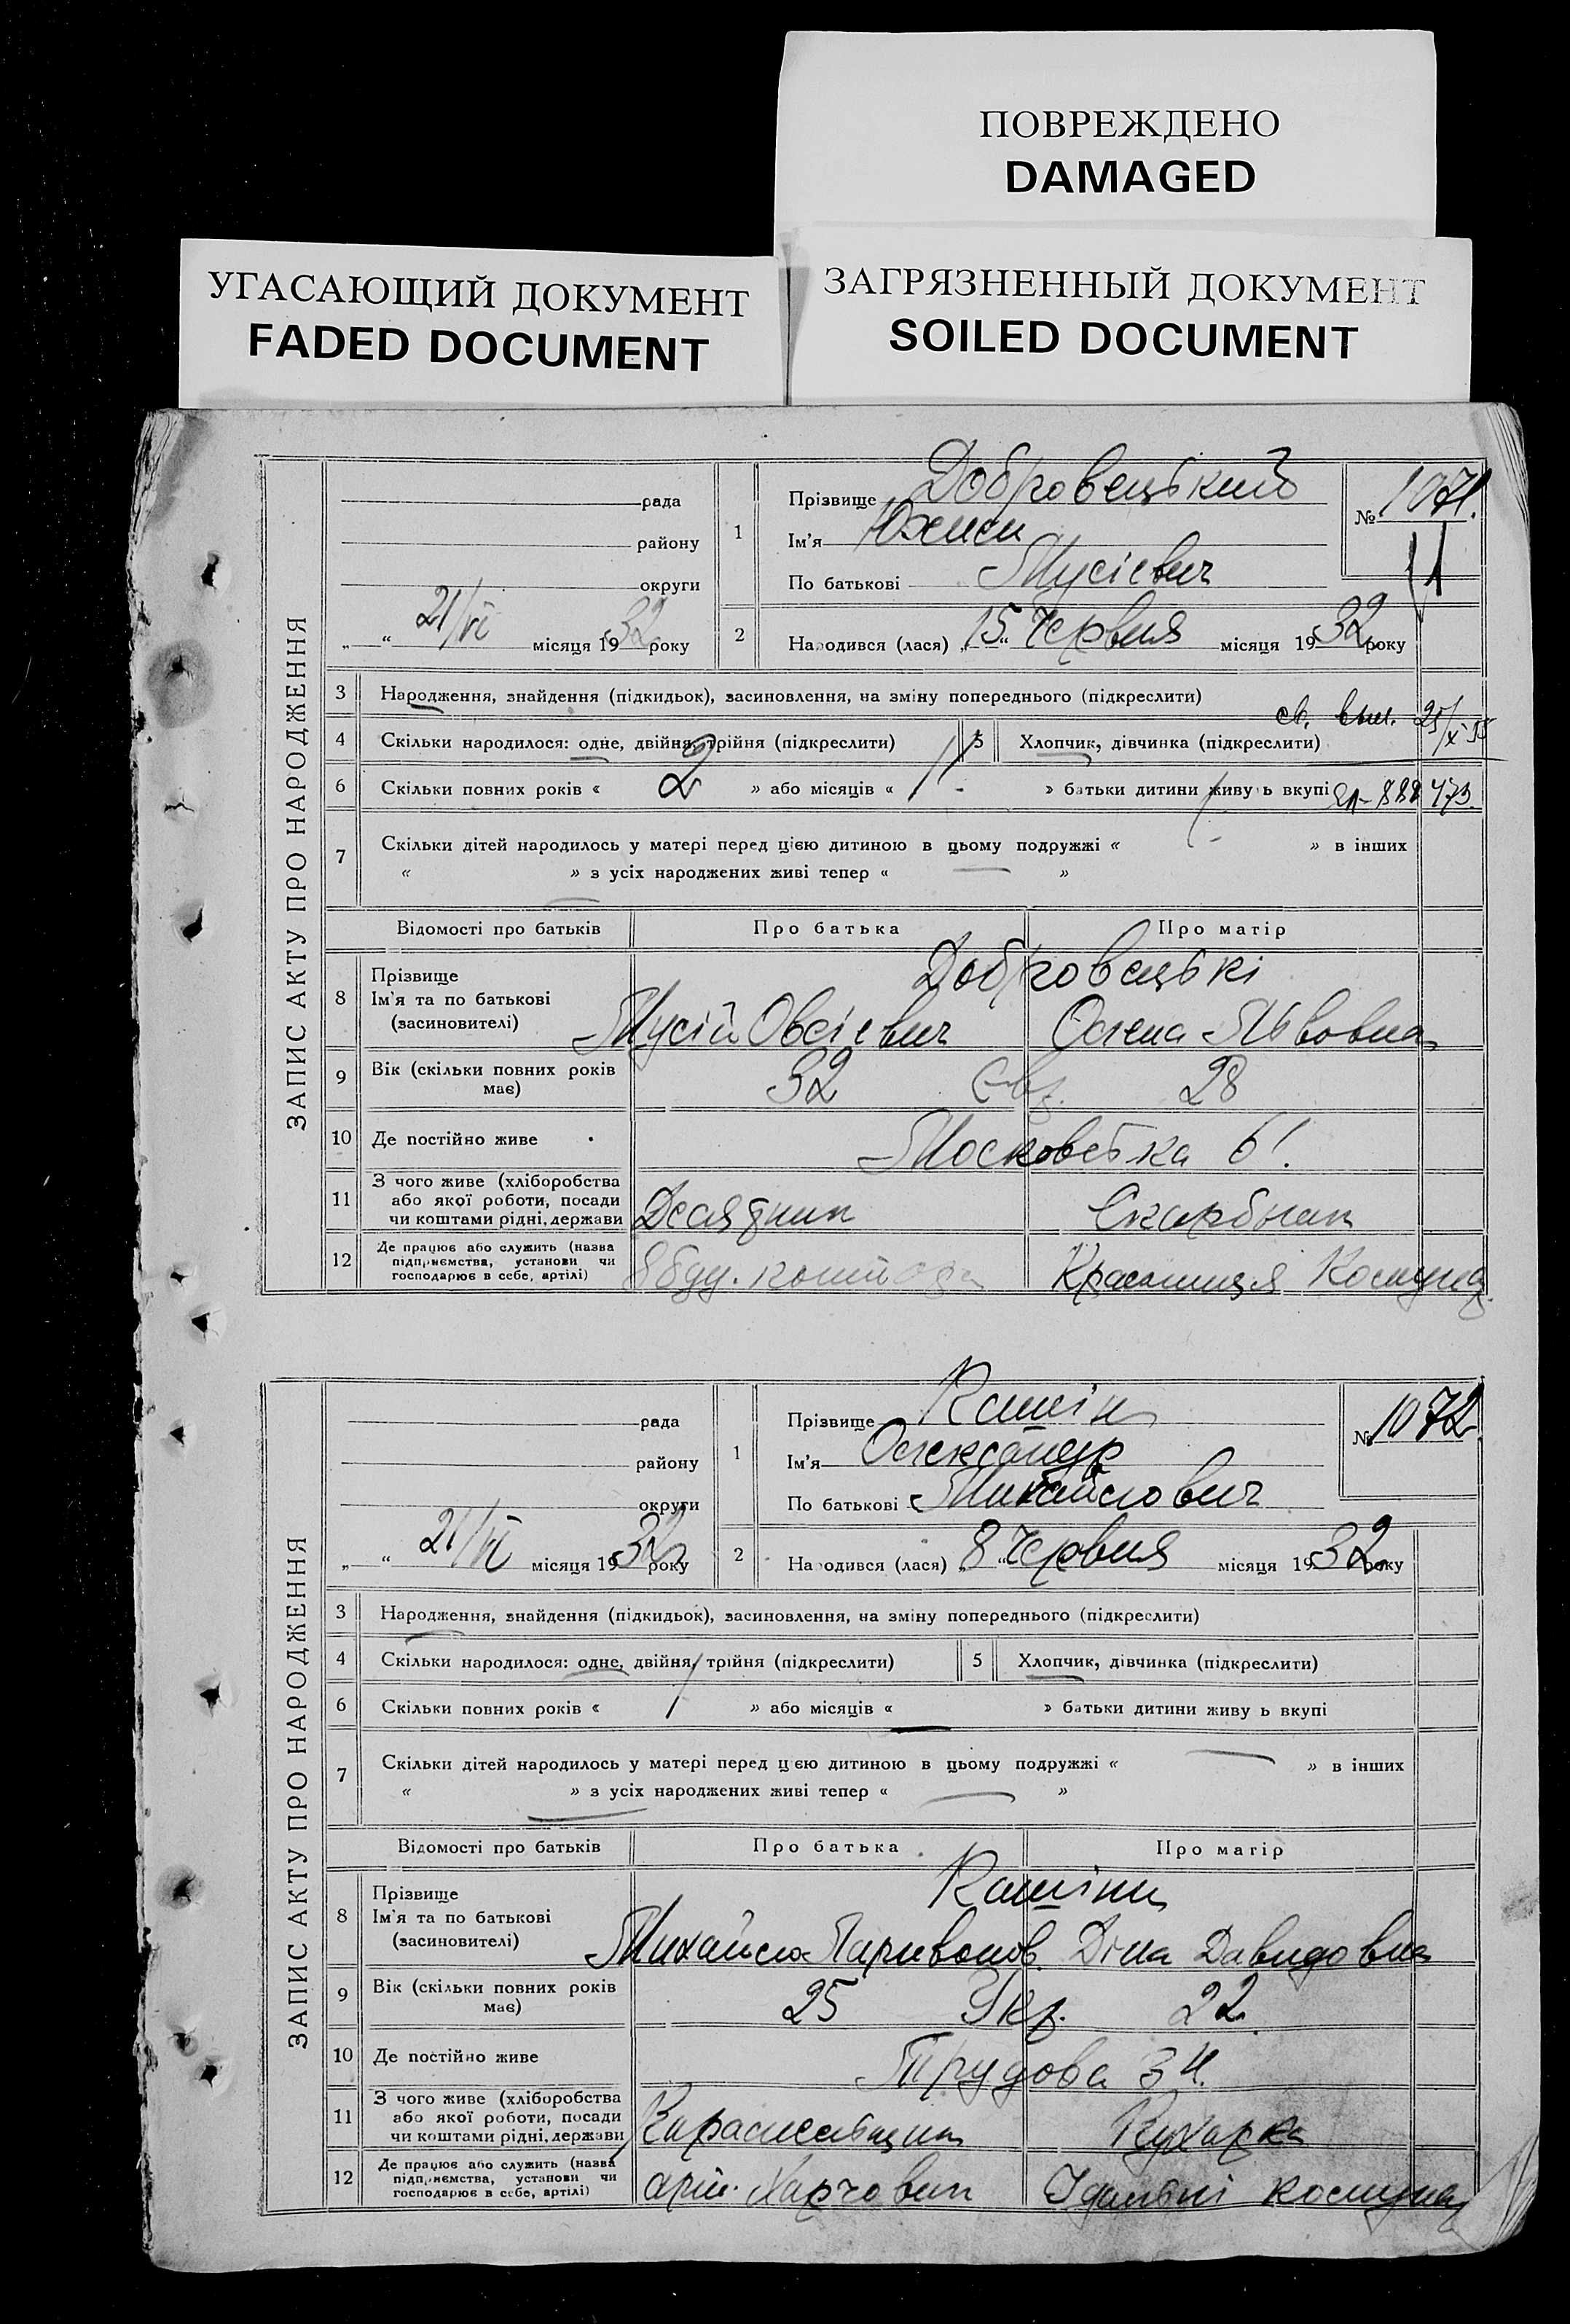 ПОВРЕЖДЕНО
DAMAGED
УГАСАЮЩИЙ ДОКУМЕНТ
FADED DOCUMENT
ЗАГРЯЗНЕННЫЙ ДОКУМЕНТ
SOILED DOCUMENT
ЗАПИС АКТУ ПРО НАРОДЖЕННЯ
рада
району
округи
„ “ 21/VI місяця 1932 року
1
Прізвище Добровецький
Ім'я
По батькові Мусієвич
№ 1071.
2
Народився (лася) „15“ Червня місяця 1932 року
3 Народження, знайдення (підкидьок), засиновлення, на зміну попереднього (підкреслити)
св. выл. 25/X-55
4 Скільки народилося: одне, двійня, трійня (підкреслити) 5 Хлопчик, дівчинка (підкреслити)
6 Скільки повних років « 2 » або місяців « » батьки дитини живуть вкупі
7 Скільки дітей народилось у матері перед цією дитиною в цьому подружжі « » в інших
« » з усіх народжених живі тепер « »
Відомості про батьків Про батька Про матір
8 Прізвище Добровецькі
Ім'я та по батькові
(засиновителі) Мусій Овсієвич Олена Львовна
9 Вік (скільки повних років має) 32 Євр. 28
10 Де постійно живе Московська 61.
11 З чого живе (хліборобства
або якої роботи, посади
чи коштами рідні, держави Десятник
12 Де працює або служить (назва
підприємства, установи чи
господарює в себе, артілі)
ЗАПИС АКТУ ПРО НАРОДЖЕННЯ
рада
району
округи
„ “ 21/VI місяця 1932 року
1
Прізвище Кашін
Ім'я Олександр
По батькові Михайлович
№ 1072
2
Народився (лася) „8“ Червня місяця 1932 року
3 Народження, знайдення (підкидьок), засиновлення, на зміну попереднього (підкреслити)
4 Скільки народилося: одне, двійня, трійня (підкреслити) 5 Хлопчик, дівчинка (підкреслити)
6 Скільки повних років « 1 » або місяців « — » батьки дитини живуть вкупі
7 Скільки дітей народилось у матері перед цією дитиною в цьому подружжі « — » в інших
« — » з усіх народжених живі тепер « — »
Відомості про батьків Про батька Про матір
8 Прізвище Кашіни
Ім'я та по батькові
(засиновителі) Михайло Діна Давидовна
9 Вік (скільки повних років має) 25 Укр. 22
10 Де постійно живе Трудова 34.
11 З чого живе (хліборобства
або якої роботи, посади
чи коштами рідні, держави Карамельщик Кухарка
12 Де працює або служить (назва
підприємства, установи чи
господарює в себе, артілі) Харчовик Їдальні